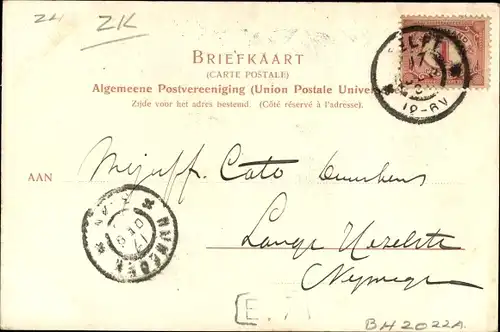 ZK ZK
BRIEFKAART
(CARTE POSTALE)
Algemeene Postvereeniging (Union Postale Univer
Zijde voor het adres bestemd. (Côté réservé à l'adresse).
DELFT
17
12-8V
AAN
Mejuff. Cato
Lange Hezelstr
Nijmegen
NIJMEGEN
17 DEC
[E.
BH2022A